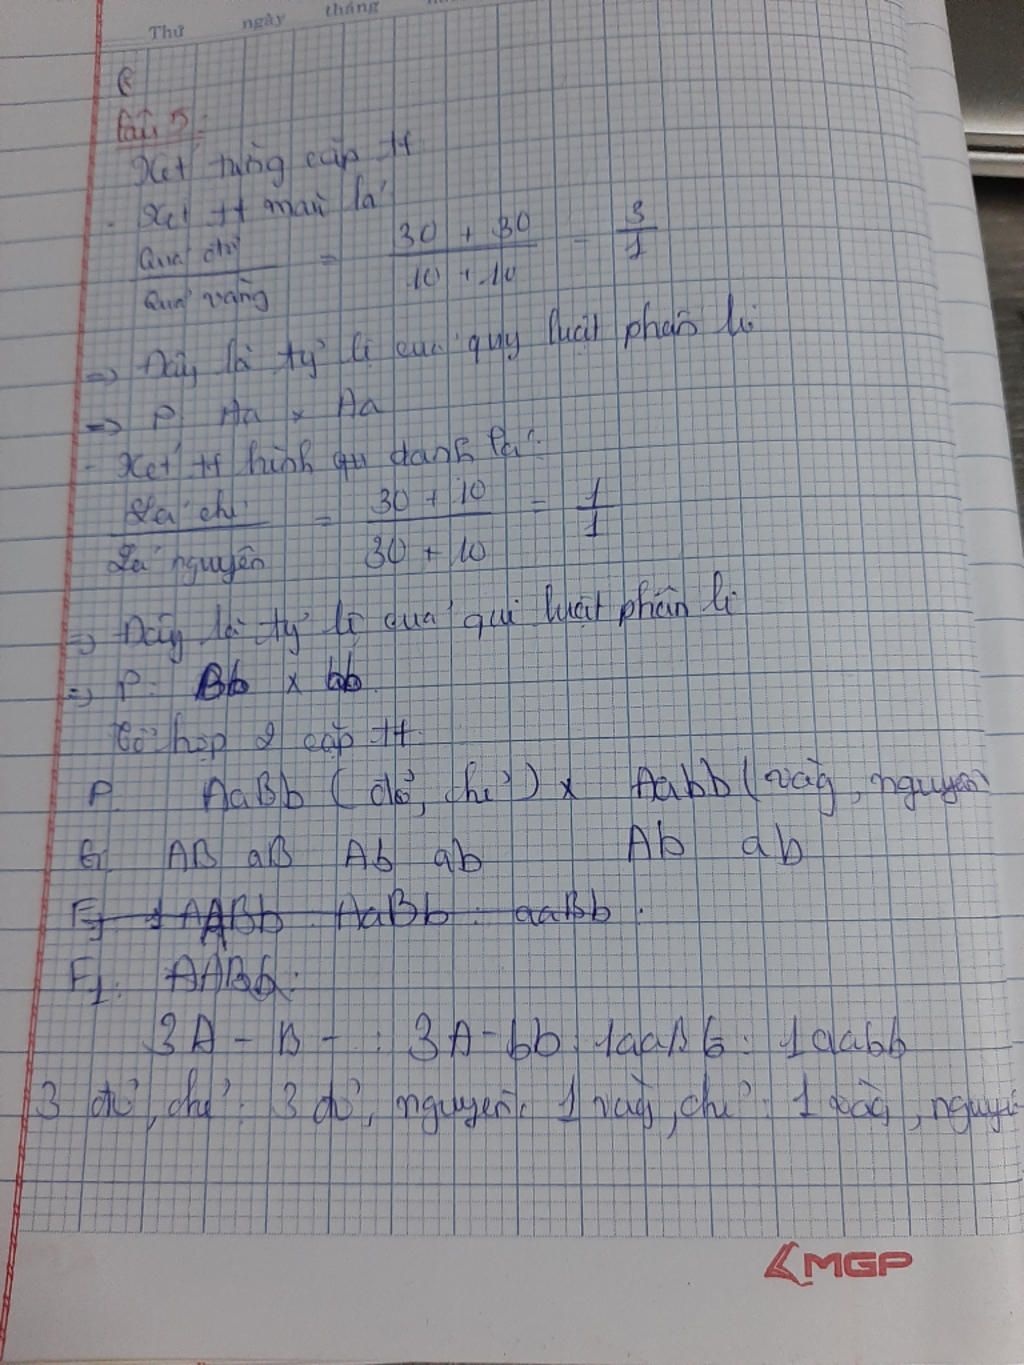 Thứ ngày tháng
Câu 5:
Xét từng cặp tt
- Xét tt màu lá
Quả đỏ / Quả vàng = 30 + 30 / 10 + 10 = 3 / 1
=> Đây là tỷ lệ của quy luật phân li
=> P: Aa x Aa
- Xét tt hình dạng lá:
Lá chẻ / Lá nguyên = 30 + 10 / 30 + 10 = 1 / 1
=> Đây là tỷ lệ của qui luật phân li
=> P: Bb x bb
Tổ hợp 2 cặp tt:
P AaBb (đỏ, chẻ) x Aabb (vàg, nguyên
G: AB aB Ab ab Ab ab
F1 1 AABb : AaBb : aaBb :
F1: AABb:
3A-B- : 3A-bb : 1aaBb : 1aabb
3 đỏ, chẻ : 3 đỏ, nguyên : 1 vàg, chẻ : 1 vàg, nguyê
MGP